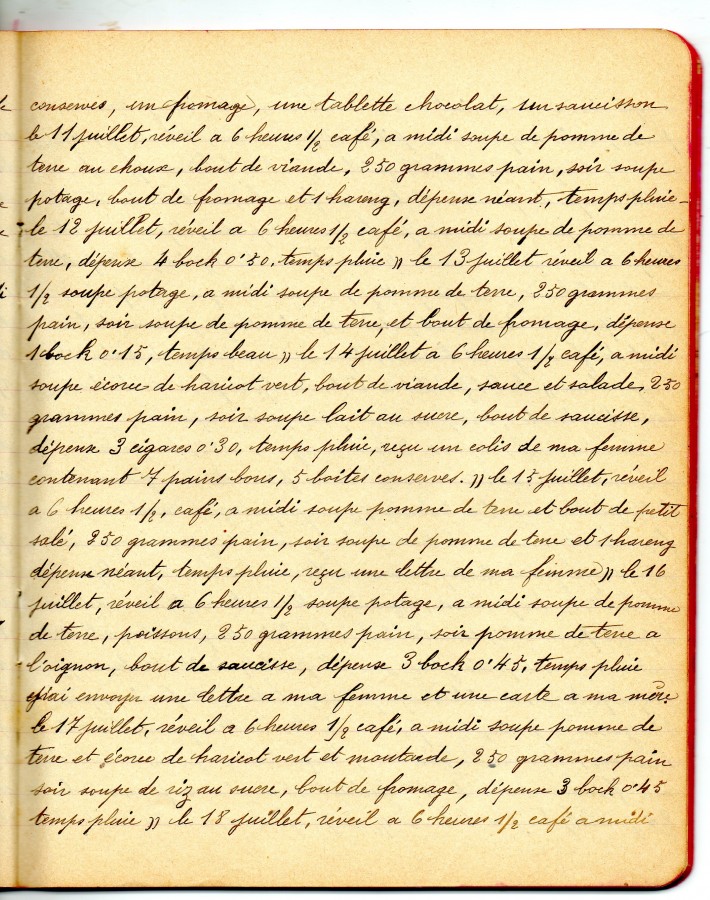 conserves, un fromage, une tablette chocolat, un saucisson
le 11 juillet, réveil a 6 heures 1/2 café, a midi soupe de pomme de
terre au choux, bout de viande, 250 grammes pain, soir soupe
potage, bout de fromage et 1 hareng, dépense néant, temps pluie –
le 12 juillet, réveil a 6 heures 1/2 café, a midi soupe de pomme de
terre, dépense 4 bock 0'50, temps pluie )) le 13 juillet réveil a 6 heures
1/2 soupe potage, a midi soupe de pomme de terre, 250 grammes
pain, soir soupe de pomme de terre, et bout de fromage, dépense
1 bock 0'15, temps beau )) le 14 juillet a 6 heures 1/2 café, a midi
soupe écorce de haricot vert, bout de viande, sauce et salade, 250
grammes pain, soir soupe lait au sucre, bout de saucisse,
dépense 3 cigares 0'30, temps pluie, reçu un colis de ma femme
contenant 7 pains bons, 5 boîtes conserves. )) le 15 juillet, réveil
a 6 heures 1/2, café, a midi soupe pomme de terre et bout de petit
salé, 250 grammes pain, soir soupe de pomme de terre et 1 hareng
dépense néant, temps pluie, reçu une lettre de ma femme )) le 16
juillet, réveil a 6 heures 1/2 soupe potage, a midi soupe de pomme
de terre, poissons, 250 grammes pain, soir pomme de terre a
l'oignon, bout de saucisse, dépense 3 bock 0'45, temps pluie
envoyer une lettre a ma femme et une carte a ma mère.
le 17 juillet, réveil a 6 heures 1/2 café, a midi soupe pomme de
terre et écorce de haricot vert et moutarde, 250 grammes pain
soir soupe de riz au sucre, bout de fromage, dépense 3 bock 0'45
temps pluie )) le 18 juillet, réveil a 6 heures 1/2 café a midi